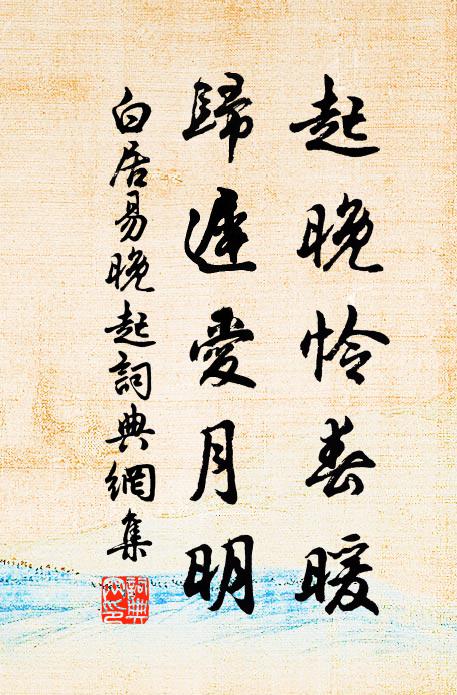 起晚怜春暖
歸遲愛月明
白居易晚起詞典網集